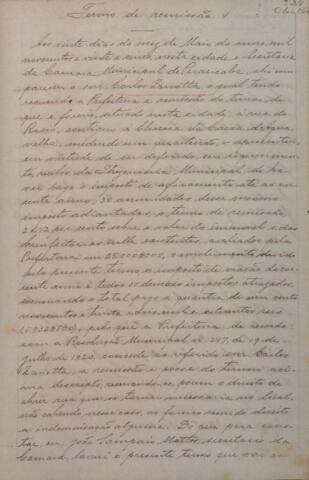 Termo de remissão
Aos vinte dias do mez de Maio do anno mil
novecentos e vinte e um, nesta cidade e Secretaria
da Camara Municipal de Piracicaba, ahi com-
pareceu o snr. Carlos Zanatta, o qual tendo
requerido á Prefeitura a remissão do terreno de
que é foreiro, situado nesta cidade, á rua do
contiguo á chacara da Caixa d'agua
velha, medindo um quarteirão, e apresentou,
em virtude de ser deferido seu requerimento,
recibo da Thesouraria Municipal de ha-
ver pago o imposto de aforamento até ao cor-
rente anno, 30 annuidades desse mesmo
imposto adiantadas e o termo de remissão,
2 1/2 por cento sobre o valor do immovel e das
bemfeitorias nelle existentes, avaliados pela
Prefeitura em
pelo presente termo, o imposto de viação do cor-
rente anno e todos os demais impostos atrazados,
sommando o total pago a quantia de um conto
novecentos e trinta e dois mil e oitocentos reis
(1:932$800), pelo que a Prefeitura, de accordo
com a Resolução Municipal nº 247, de 19 de
Julho de 1920, concede ao referido snr. Carlos
Zanatta, a remissão e posse do terreno aci-
ma descripto, reservando-se porem o direito de
abrir rua que se tornar necessaria no local,
não cabendo nesse caso, ao foreiro remido direito
a indemnisação alguma. Do que para cons-
tar, eu, João Sampaio Mattos, secretario da
Camara, lavrei o presente termo que vai as-